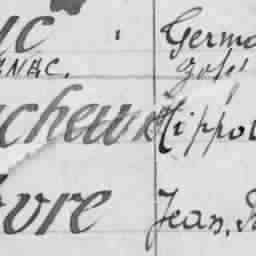 uc Germa
NAC. José
cheux Hippol
vre Jean, P